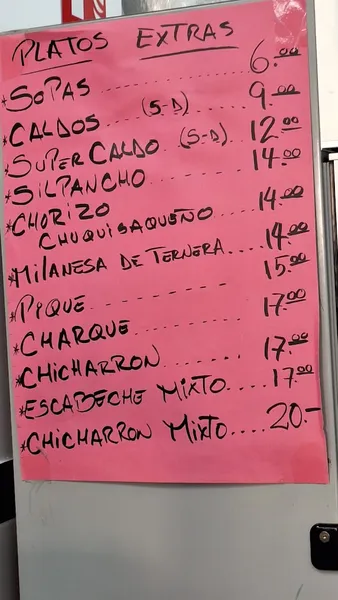 PLATOS EXTRAS
*SOPAS ............ 6.00
*CALDOS (S-D) ....... 9.00
*SUPER CALDO (S-D) .. 12.00
*SILPANCHO ......... 14.00
*CHORIZO
CHUQUISAQUEÑO .... 14.00
*MILANESA DE TERNERA.... 14.00
*PIQUE - - - - - - - 15.00
*CHARQUE ......... 17.00
*CHICHARRON ....... 17.00
*ESCABECHE MIXTO.... 17.00
*CHICHARRON MIXTO.... 20.-